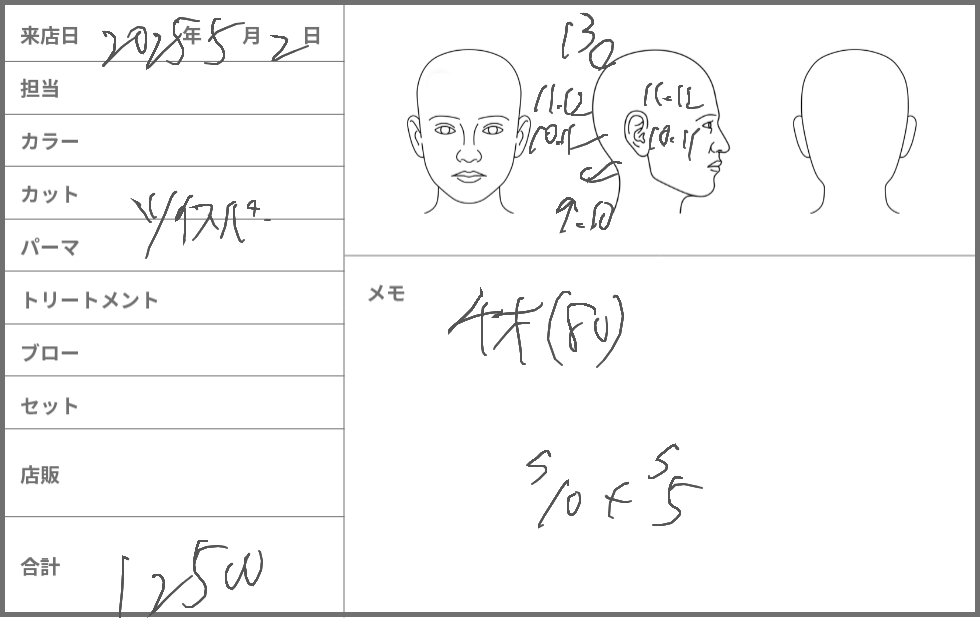 来店日 2025年5月2日
担当
カラー
カット
ツイスパ
パーマ
トリートメント
ブロー
セット
店販
合計 12500
130
11.12
10.11
11.12
10.11
9.10
メモ
(80)
10 + 5